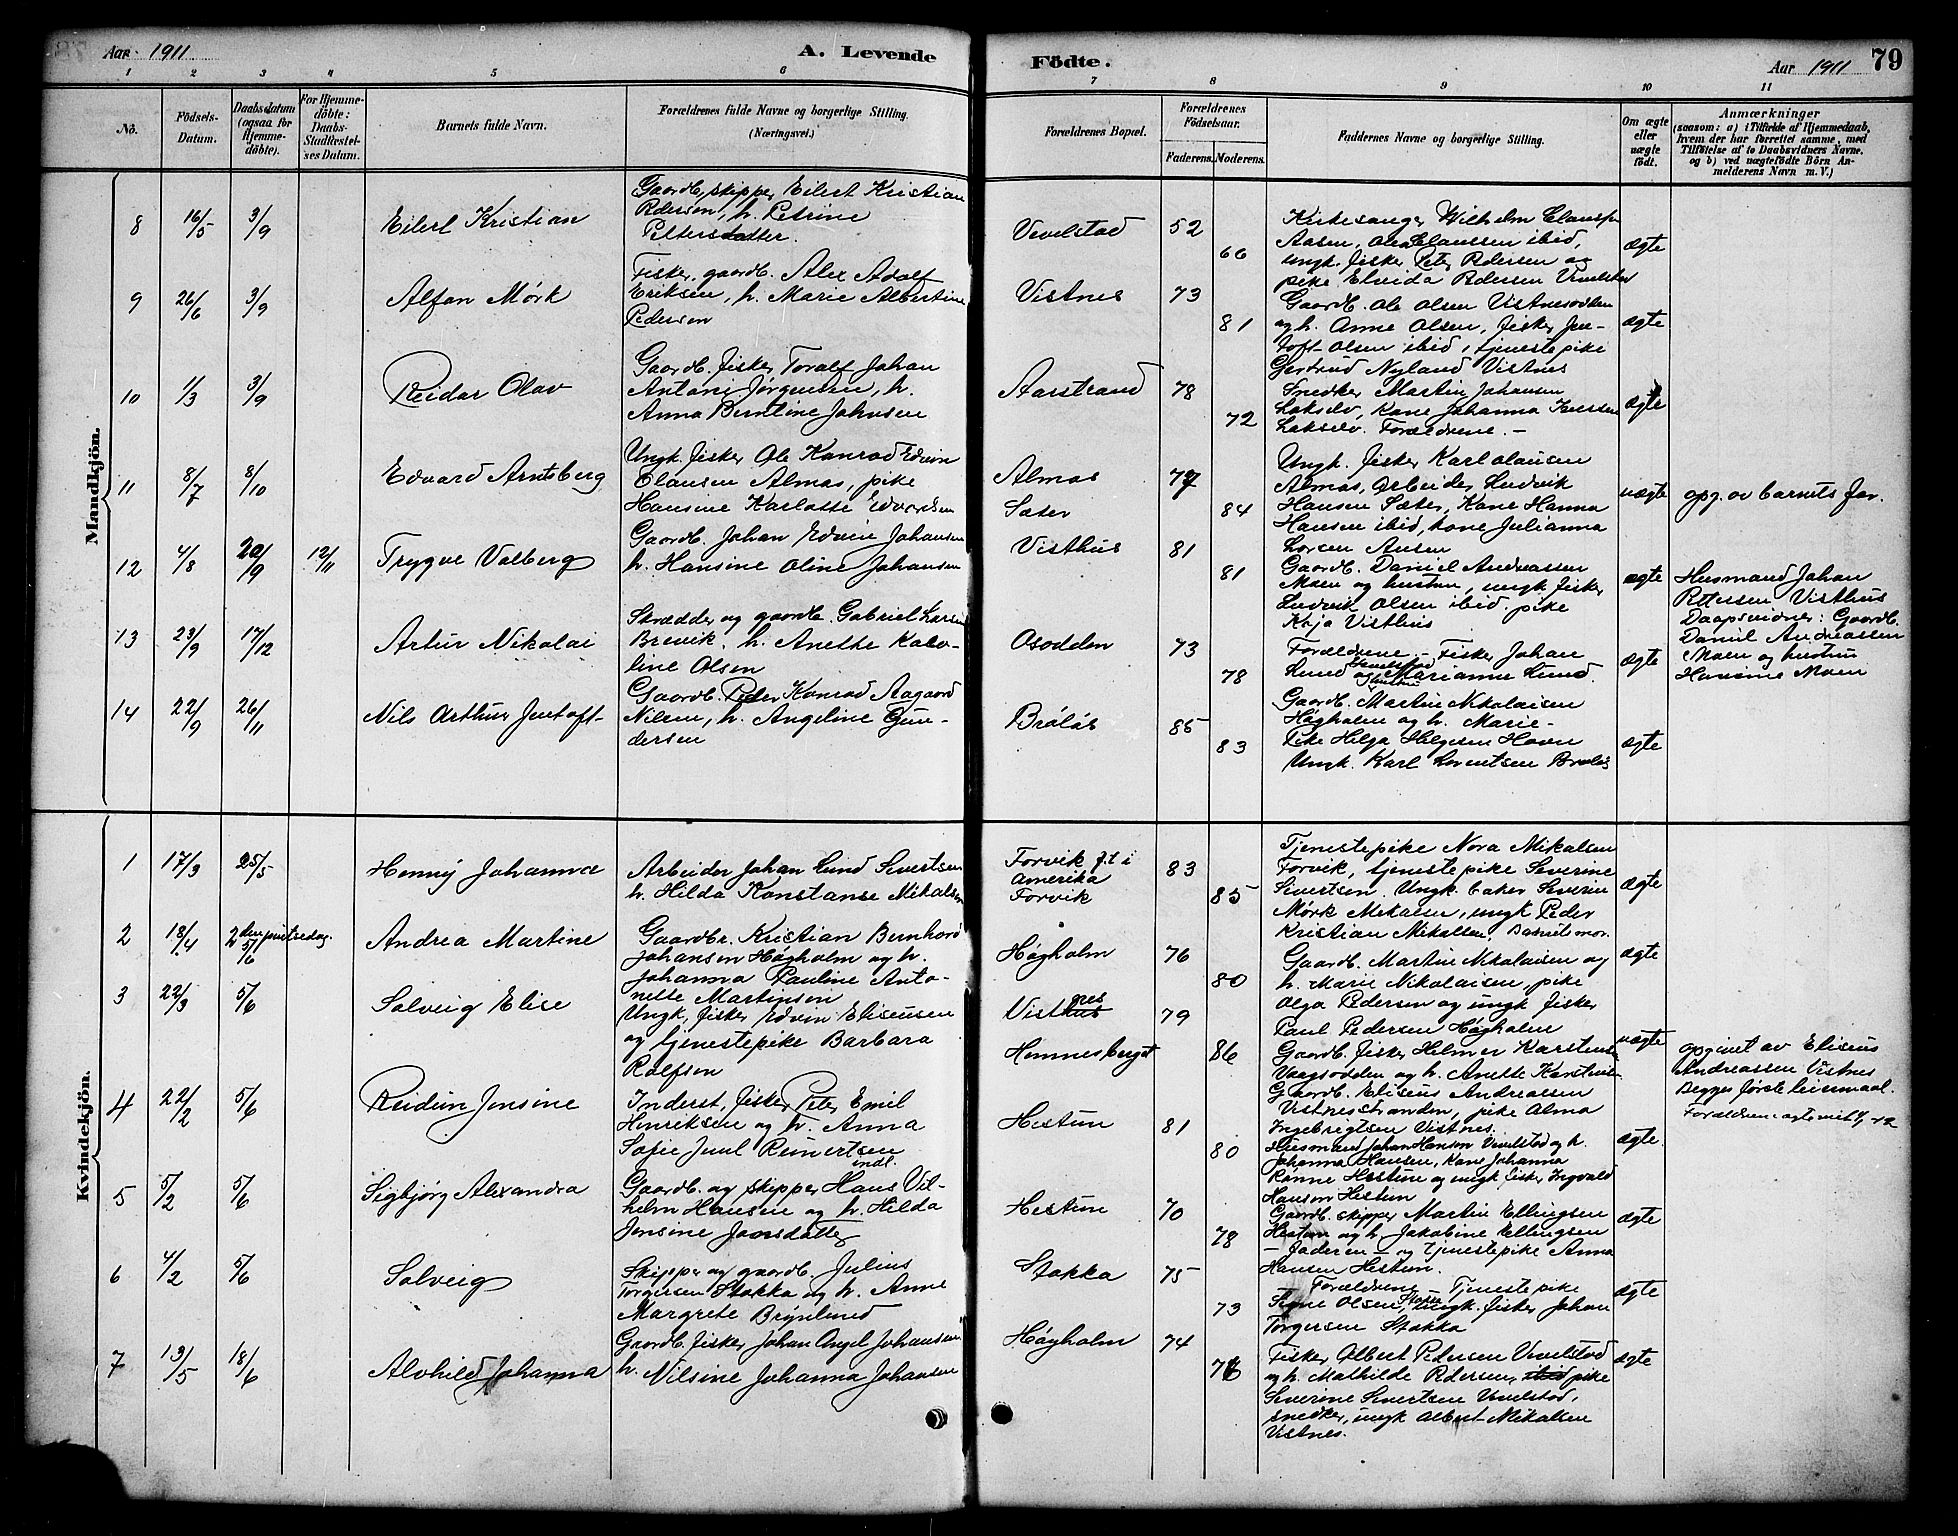 Aar 1911
A. Levende
Födte.
Aar 1911
79
1 2 3 4 5 6 7 8 9 10 11
No.
Födsels-
Datum.
Daabsdatum
(ogsaa for
Hjemme-
döbte).
For Hjemme-
döbte:
Daabs-
Stadfæstel-
ses Datum.
Barnets fulde Navn.
Forældrenes fulde Navne og borgerlige Stilling.
(Næringsvei.)
Forældrenes Bopæl.
Forældrenes
Födselsaar.
Faderens. Moderens.
Faddernes Navne og borgerlige Stilling.
Om ægte
eller
uægte
födt.
Anmærkninger
(saasom: a) i Tilfælde af Hjemmedaab,
hvem der har forrettet samme, med
Tilföielse af to Daabsvidners Navne,
og b) ved uægtefödte Börn An-
melderens Navn m. V.)
Mandkjön.
8 16/5 3/9 Eilert Kristian
Gaardb. skipper Eilert Kristian
Pedersen, h. Petrine
Pettersdatter.
Vevelstad 52 66
Kirkesanger Wilhelm Clausen
Aasen, Olea Claussen ibid,
ungk. fisker Peter Pedersen og
pike Elvida Pedersen Vevelstad
ægte
9 26/6 3/9 Alfon Mørk
Fisker, gaardb. Alex Adolf
Eriksen, h. Marie Albertine
Pedersen
Vistnes 73 81
Gaardb. Ole Olsen Vistnesodden
og h. Anne Olsen, fisker Jen-
toft Olsen ibid, tjenestepike
Gertrud Nyland Vistnes
ægte
10 1/3 3/9 Reidar Olav
Gaardb. fisker Toralf Johan
Antoni Jørgensen, h.
Anna Berntine Johnsen
Aarstrand 78 72
Snedker Martin Johansen
Lakselv, Kone Johanna
Lakselv. Forældrene. -
ægte
11 8/7 8/10 Edvard Arntsberg
Ungk. fisker Ole Konrad Edvin
Olausen Almås, pike
Hansine Karlotte Edvardsen
Almås
Sæter
77 84
Ungk. fisker Karl Olausen
Almås, Arbeider Ludvik
Hansen Sæter, Kone Hanna
Hansen ibid, Kone Julianna
Lorsen Ausen
uægte
opg. av barnets far.
12 4/8 20/9 12/11 Trygve Valberg
Gaardb. Johan Edvin Johansen
h. Hansine Oline Johansen
Visthus 81 81
Gaardb. Daniel Andreassen
Moen og hustru, ungk. fisker
Ludvik Olsen ibid. pike
Kaja Visthus
ægte
Husmand Johan
Pettersen Visthus
Daapsvidner: Gaardb.
Daniel Andreassen
Moen og hustru
Hansine Moen
13 23/9 17/12 Artur Nikolai
Skrædder og gaardb. Gabriel Larsen
Brevik, h. Anette Karo-
line Olsen
Osodden 73 78
Forældrene - Fisker Johan
Lund Vevelstad og hustru Marianne Lund.
ægte
14 22/9 26/11 Nils Arthur Jentoft
Gaardb. Peder Konrad Aagaard
Nilsen, h. Angeline Gun-
dersen
Brålås 85 83
Gaardb. Martin Nikolaisen
Høgholm og h. Marie -
Pike Helga Helgesen Havn
Ungk. Karl Lorentsen Brålås
ægte
Kvindekjön.
1 17/3 25/5 Henny Johanna
Arbeider Johan Lund Sivertsen
h. Hilda Konstanse Mikalsen
Forvik f.t i
Amerika
Forvik
83 85
Tjenestepike Nora Mikalsen
Forvik, tjenestepike Severine
Sivertsen. Ungk. baker Severin
Mørk Mikalsen, ungk Peder
Kristian Mikalsen. Barnets mor.
ægte
2 18/4 2den pintsedag 5/6 Andrea Martine
Gaardbr. Kristian Bernhard
Johansen Høgholm og h.
Johanna Pauline Anto-
nette Martinsen
Høgholm 76 80
Gaardb. Martin Nikolaisen og
h. Marie Nikolaisen, pike
Olga Pedersen og ungk fisker
Paul Pedersen Høgholm
ægte
3 22/3 5/6 Solveig Elise
Ungk, fisker Edvin Eliseusen
og tjenestepike Barbara
Rolfsen
Vistnes
Hemnesberget
79 86
Gaardb. fisker Helmer Karstensen
Vaagsodden og h. Anette Karstensen
Gaardb. Eliseus Andreassen
Vistnesstranden, pike Alma
Ingebrigtsen Vistnes.
uægte
opgivet av Eliseus
Andreassen Vistnes
Begges første leiermaal.
4 22/2 5/6 Reidun Jensine
Inderst, fisker Peter Emil
Henriksen og h. Anna
Sofie Juul Reinertsen
Hestun 81 80
Husmand Johan Hansen Vevelstad og h.
Johanna Hansen, Kone Johanna
Rønne Hestun og ungk fisker Ingvald
Hansen Hestun
ægte.
5 5/2 5/6 Sigbjørg Alexandra
Gaardb. og skipper Hans Vil-
helm Hansen og h. Hilda
Jensine Joansdatter
Hestun 70 78
Gaardb. skipper Martin Ellingsen
Hestun og h. Jakobine Ellingsen
- faderen - og tjenestepike Anna
Hansen Hestun.
ægte
6 4/2 5/6 Solveig
Skipper og gaardb. Julius
Torgersen Stokka og h. Anne
Margrete Brynlund
Stokka 75 73
Forældrene Tjenestepike
Signe Olsen, Stokka ungk. fisker Johan
Torgersen Stokka
ægte
7 13/5 18/6 Alvhild Johanna
Gaardb. fisker Johan Angel Johansen
h. Nilsine Johanna Johansen
Høgholm 74 76
Fisker Albert Pedersen Vevelstad
og h. Mathilde Pedersen, ibid pike
Severine Sivertsen Vevelstad,
snedker, ungk Albert Mikalsen
Vistnes.
ægte